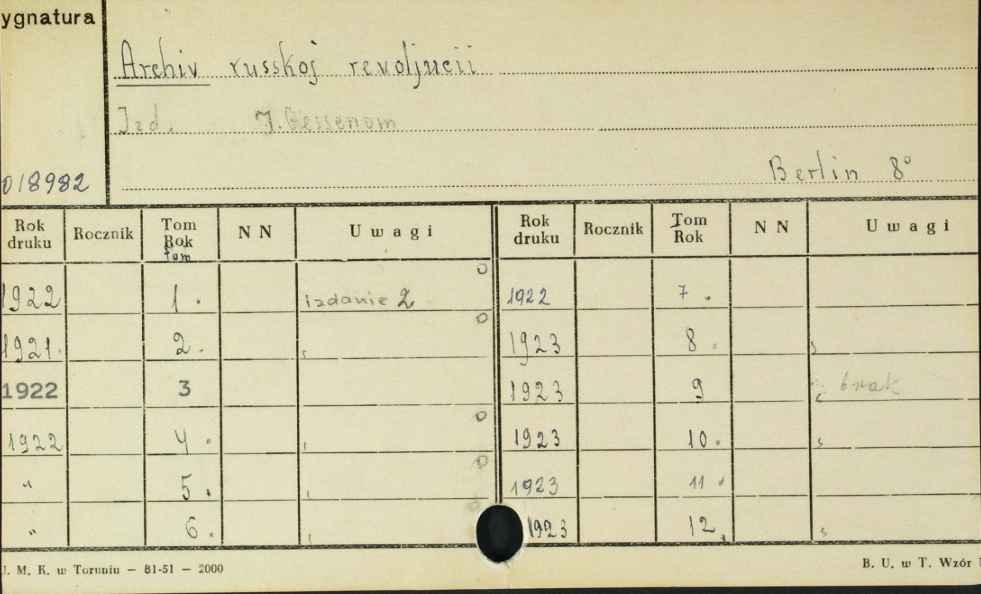 ygnatura
Archiv russkoj revoljucii
Izd. J. Gessenom
018982
Berlin 8°
Rok druku Rocznik Tom Rok tom N N Uwagi Rok druku Rocznik Tom Rok N N Uwagi
1922 1. izdanie 2 1922 7.
1921. 2. 1923 8.
1922 3 1923 9 brak
1922 4. 1923 10.
" 5. 1923 11.
" 6. 1923 12.
J. M. K. w Toruniu — 81-51 — 2000
B. U. w T. Wzór